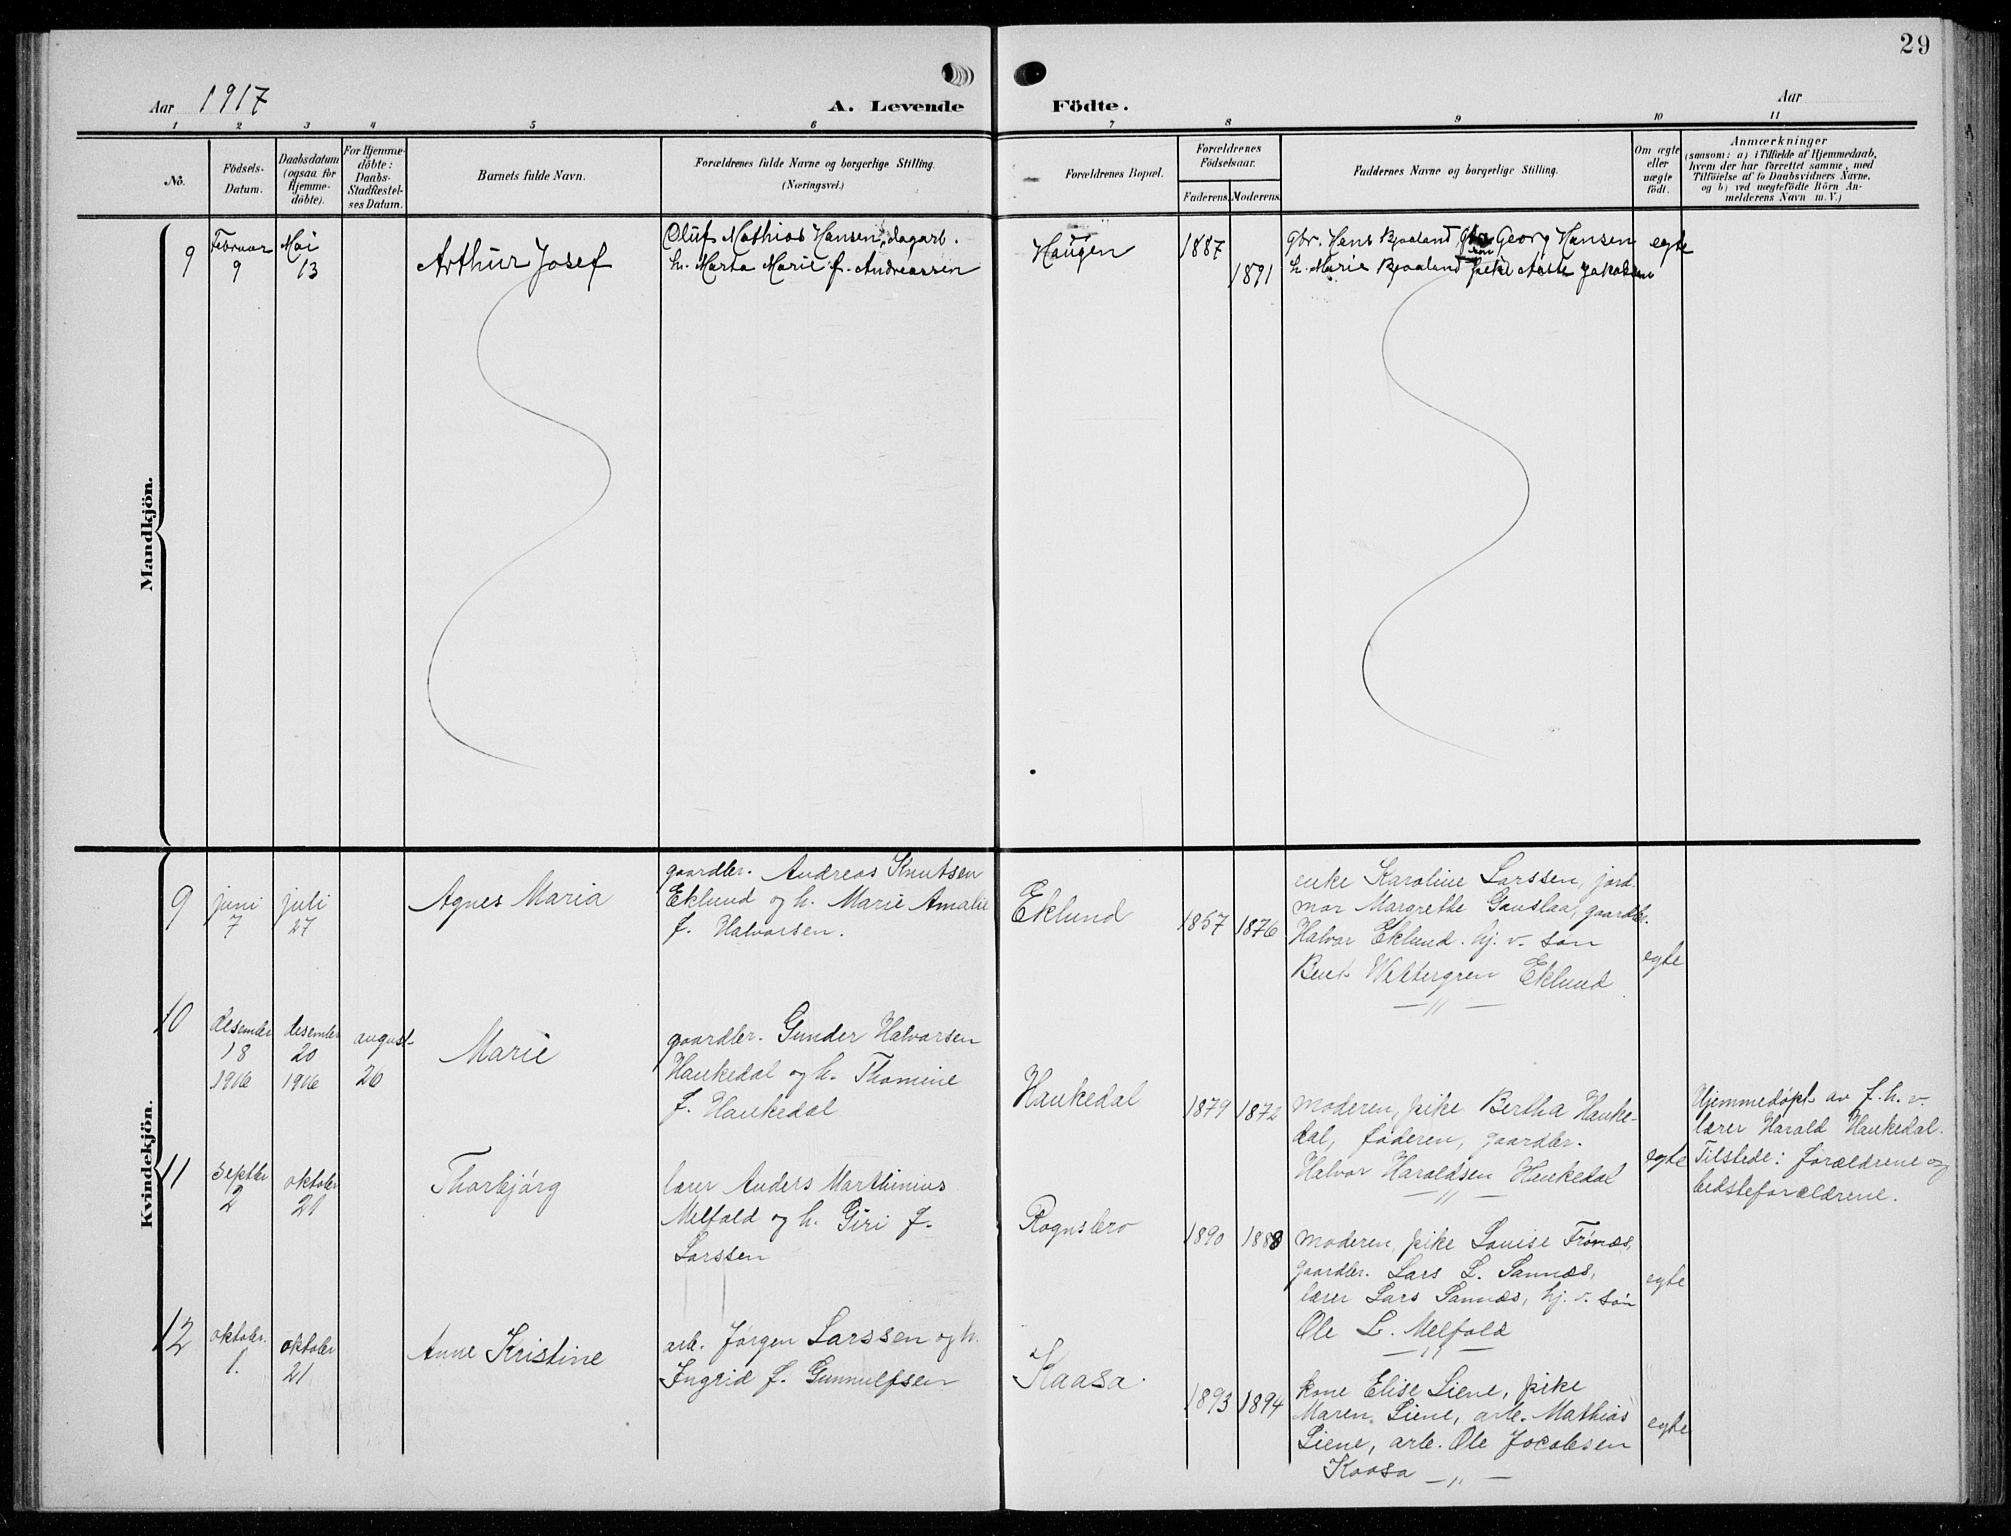 29
Aar 1917
A. Levende Födte.
Aar
1 2 3 4 5 6 7 8 9 10 11
No.
Födsels-
Datum.
Daabsdatum
(ogsaa for
Hjemme-
döbte).
For Hjemme-
döbte:
Daabs-
Stadfæstel-
ses Datum.
Barnets fulde Navn.
Forældrenes fulde Navne og borgerlige Stilling.
(Næringsvei.)
Forældrenes Bopæl.
Forældrenes
Födselsaar.
Faderens. Moderens.
Faddernes Navne og borgerlige Stilling.
Om ægte
eller
uægte
födt.
Anmærkninger
(saasom: a) i Tilfælde af Hjemmedaab,
hvem der har forrettet samme, med
Tilföielse af to Daabsvidners Navne,
og b) ved uegtefödte Börn An-
melderens Navn m. V.)
Mandkjön.
9
Februar
9
Mai
13
Arthur Josef
Oluf Mathias Hansen, dagarb.
h. Marta Marie f. Andreassen
Haugen
1887
1891
Gbr. Hans Bjaaland Georg Hansen
h. Marie Bjaaland pike Aaste Jakobsen
egte
Kvindekjön.
9
juni
7
juli
27
Agnes Maria
gaardbr. Andreas Knutsen
Eklund og h. Marie Amalie
f. Halvorsen.
Eklund
1857 1876
enke Karoline Larssen, jord
mor Margrethe Gauslaa, gaardbr.
Halvor Eklund. hj. v. søn
Bent Wettergren Eklund
— " —
egte
10
desember
18
1916
desember
20
1916
august
26
Marie
gaardbr. Gunder Halvorsen
Haukedal og h. Thomine
f. Haukedal
Haukedal
1879 1872
moderen, pike Bertha Hauke-
dal, faderen, gaardbr.
Halvor Haraldsen Haukedal
— " —
egte
Hjemmedøpt av f. h. v.
lærer Harald Haukedal.
Tilstede: forældrene og
bedsteforældrene.
11
septbr
2
oktober
21
Thorbjørg
lærer Anders Marthinius
Melfald og h. Giri f.
Larssen
Rognsbro
1890 1888
moderen, pike Louise Frønæs,
gaardbr. Lars L. Sannæs,
lærer Lars Sannæs, hj. v. søn
Ole L. Melfald
— " —
egte
12
oktober
1.
oktober
21
Anne Kristine
arb. Jørgen Larssen og h.
Ingrid f. Gunnulfsen
Kaasa.
1893 1894
kone Elise Liene, pike
Maren Liene, arb. Mathias
Liene, arb. Ole Jacobsen
Kaasa — " —
egte